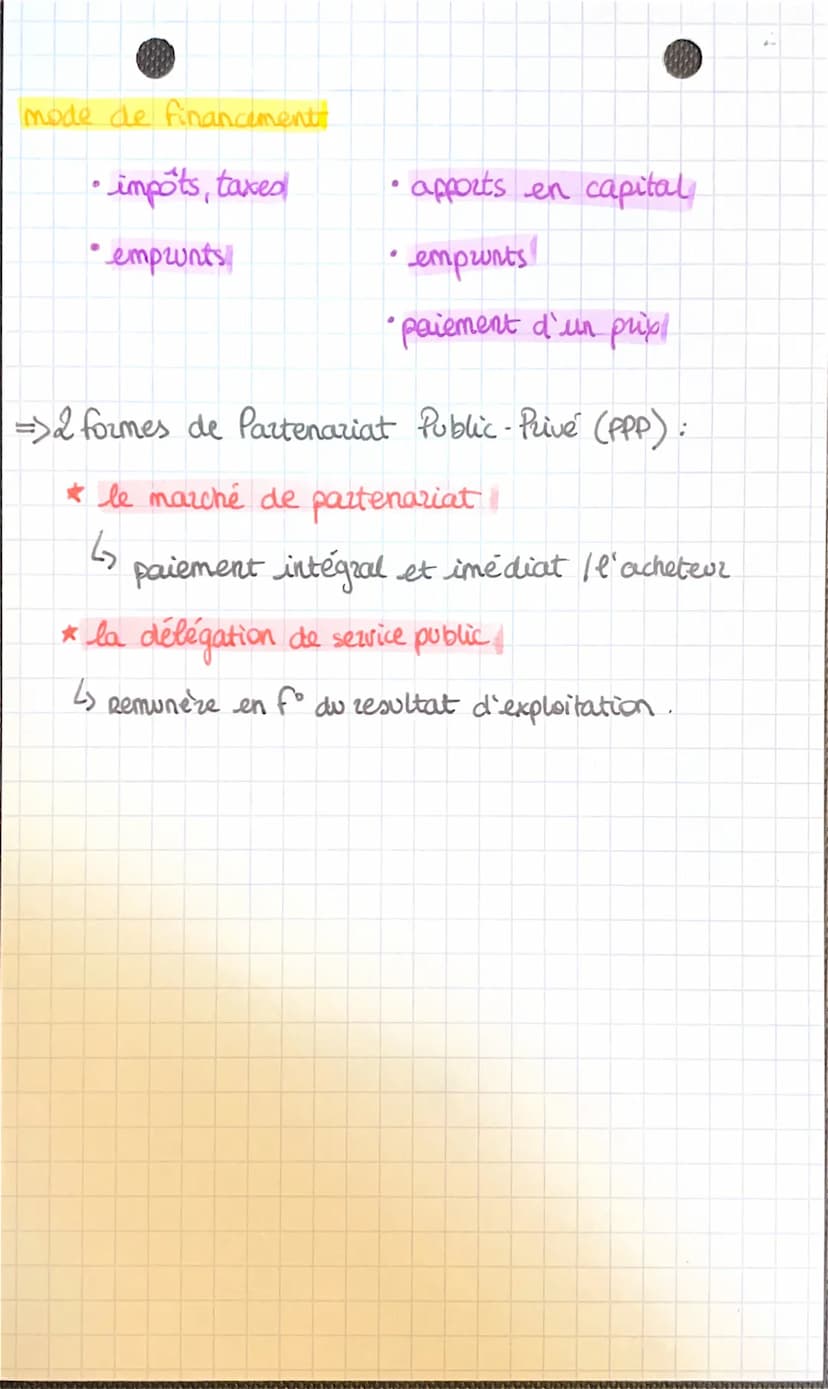 mode de financement
• impôts, taxes
• emprunts
• apports en capital
• emprunts
• paiement d'un prix
=> 2 formes de Partenariat Public-Privé (PPP) :
* le marché de partenariat
↳ paiement intégral et imédiat / l'acheteur
* la délégation de service public
↳ Remunère en f° du resultat d'exploitation.